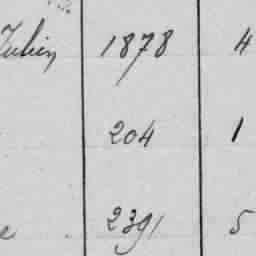 Julien 1878 4
204 1
2391 5